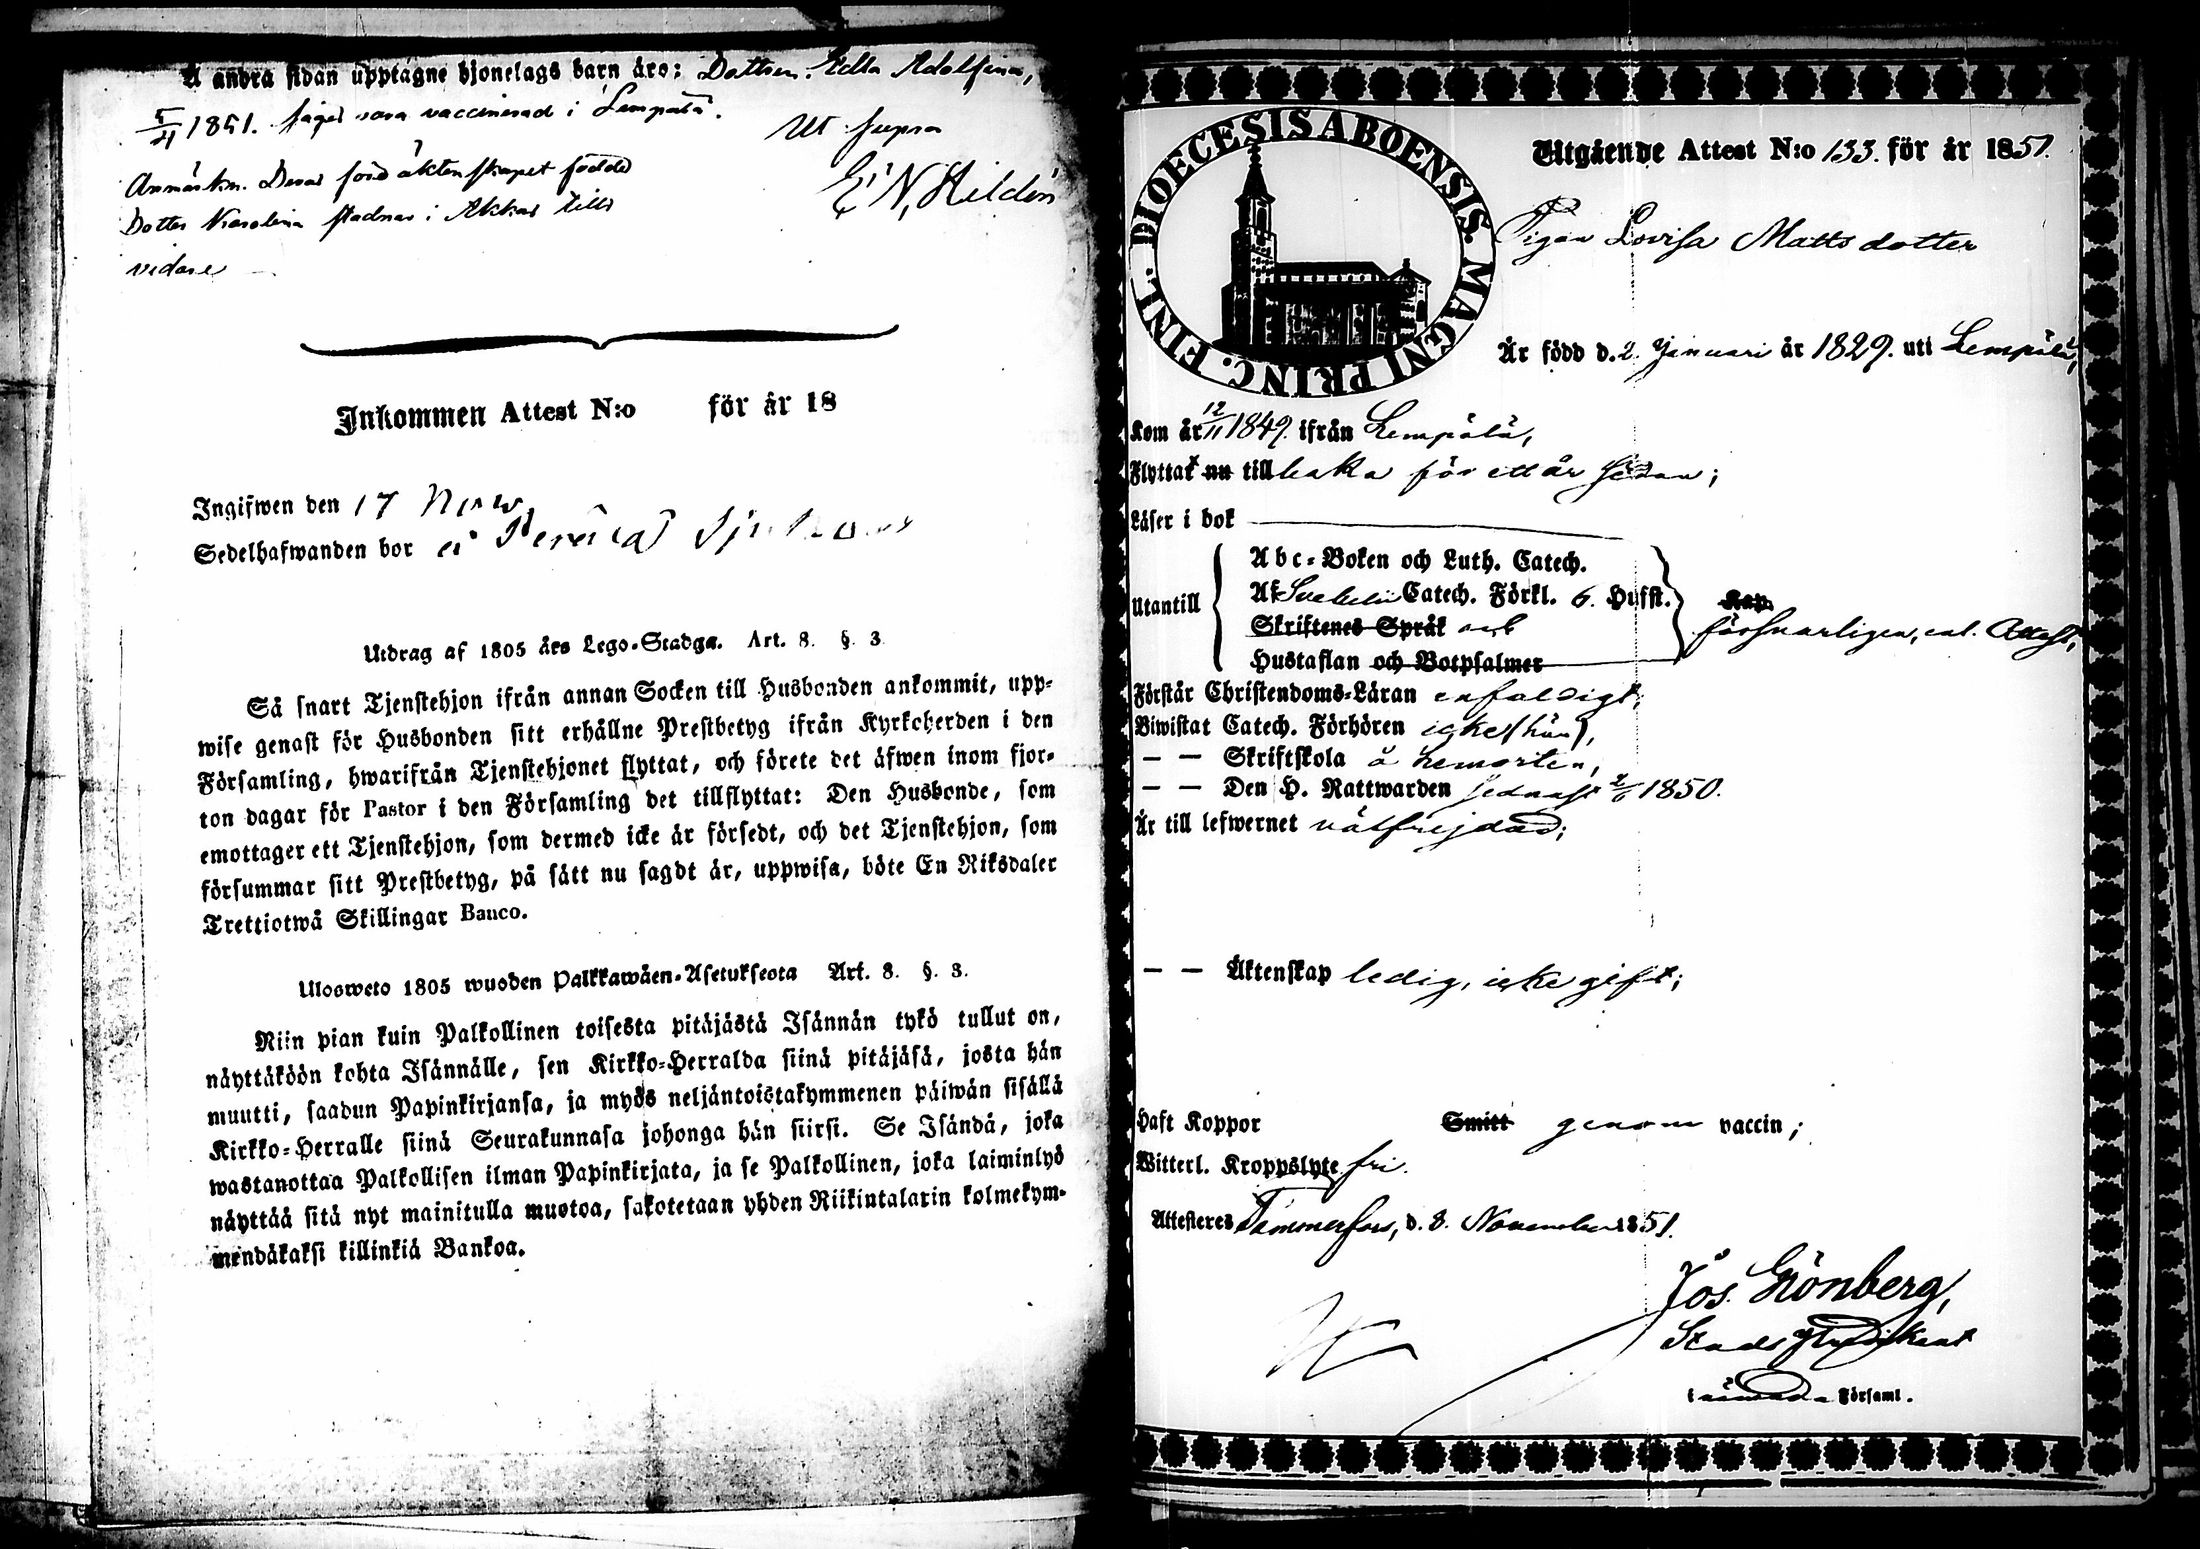 Å andra sidan upptagne hjonelags barn äro: Dottren Hella Adolfina,
5/4 1851. säges vara vaccinerad i Lempälä.
Ut supra
Anmärkn. Deras före äktenskapet födda
E. N. Hildén
Dotter Karolina stadnar i Akkas tills
vidare
Inkommen Attest N:o för år 18
Ingifwen den 17 Nov.
Sedelhafwanden bor
Utdrag af 1805 års Lego-Stadga. Art. 8. §. 3.
Så snart Tjenstehjon ifrån annan Socken till Husbonden ankommit, upp-
wise genast för Husbonden sitt erhållne Prestbetyg ifrån Kyrkoherden i den
Församling, hwarifrån Tjenstehjonet flyttat, och förete det äfwen inom fjor-
ton dagar för Pastor i den Församling det tillflyttat: Den Husbonde, som
emottager ett Tjenstehjon, som dermed icke är försedt, och det Tjenstehjon, som
försummar sitt Prestbetyg, på sätt nu sagdt är, uppwisa, böte En Riksdaler
Trettiotwå Skillingar Banco.
Ulosweto 1805 wuoden Palkkawäen-Asetuksesta Art. 8. §. 3.
Niin pian kuin Palkollinen toisesta pitäjästä Isännän tykö tullut on,
näyttäköön kohta Isännälle, sen Kirkko-Herralda siinä pitäjäsä, josta hän
muutti, saadun Papinkirjansa, ja myös neljäntoistakymmenen päiwän sisällä
Kirkko-Herralle siinä Seurakunnasa johonga hän siirsi. Se Isändä, joka
wastanottaa Palkollisen ilman Papinkirjata, ja se Palkollinen, joka laiminlyö
näyttää sitä nyt mainitulla muotoa, sakotetaan yhden Riikintalarin kolmekym-
mendäkaksi killinkiä Bankoa.
FINL. DIOECESIS ABOENSIS. MAGNI PRINC.
Utgående Attest N:o 133. för år 1851.
Pigan Lovisa Mattsdotter
Är född d. 2. Januari år 1829. uti Lempälä,
Kom år 12/11 1849. ifrån Lempälä,
Flyttat nu tillbaka för ett år sedan;
Läser i bok
Abc-Boken och Luth. Catech.
Utantill Af Svebelii Catech. Förkl. 6. Hufst. Kap.
Skriftenes Språk och försvarligen, enl. Attest,
Hustaflan och Botpsalmer
Förstår Christendoms-Läran enfaldigt,
Biwistat Catech. Förhören icke här,
— — Skriftskola å hemorten,
— — Den H. Nattwarden sednast 2/6 1850.
Är till lefwernet välfrejdad;
— — Äktenskap ledig, icke gift;
Haft Koppor Smitt genom vaccin;
Witterl. Kroppslyte fri.
Attesteras Tammerfors, d. 8. November 1851.
Jos. Grönberg,
Stads
i nämnda Församl.